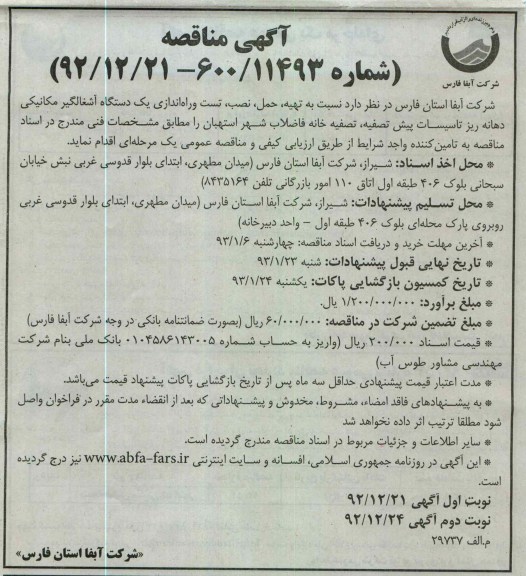 آگهی مناقصه
(شماره ۶۰۰/۱۱۴۹۳–۹۲/۱۲/۲۱)
شرکت آبفا فارس
شرکت آبفا استان فارس در نظر دارد نسبت به تهیه، حمل، نصب، تست وراه‌اندازی یک دستگاه آشغالگیر مکانیکی
دهانه ریز تاسیسات پیش تصفیه، تصفیه خانه فاضلاب شهر استهبان را مطابق مشخصات فنی مندرج در اسناد
مناقصه به تامین‌کننده واجد شرایط از طریق ارزیابی کیفی و مناقصه عمومی یک مرحله‌ای اقدام نماید.
* محل اخذ اسناد: شیراز، شرکت آبفا استان فارس (میدان مطهری، ابتدای بلوار قدوسی غربی نبش خیابان
سبحانی بلوک ۴۰۶ طبقه اول اتاق ۱۱۰ امور بازرگانی تلفن ۸۴۳۵۱۶۴)
* محل تسلیم پیشنهادات: شیراز، شرکت آبفا استان فارس (میدان مطهری، ابتدای بلوار قدوسی غربی
روبروی پارک محله‌ای بلوک ۴۰۶ طبقه اول – واحد دبیرخانه)
* آخرین مهلت خرید و دریافت اسناد مناقصه: چهارشنبه ۹۳/۱/۶
* تاریخ نهایی قبول پیشنهادات: شنبه ۹۳/۱/۲۳
* تاریخ کمسیون بازگشایی پاکات: یکشنبه ۹۳/۱/۲۴
* مبلغ برآورد: ۱/۲۰۰/۰۰۰/۰۰۰ یال.
* مبلغ تضمین شرکت در مناقصه: ۶۰/۰۰۰/۰۰۰ ریال (بصورت ضمانتنامه بانکی در وجه شرکت آبفا فارس)
* قیمت اسناد ۲۰۰/۰۰۰ ریال (واریز به حساب شماره ۰۱۰۴۵۸۶۱۴۳۰۰۵ بانک ملی بنام شرکت
مهندسی مشاور طوس آب)
* مدت اعتبار قیمت پیشنهادی حداقل سه ماه پس از تاریخ بازگشایی پاکات پیشنهاد قیمت می‌باشد.
* به پیشنهادهای فاقد امضاء، مشروط، مخدوش و پیشنهاداتی که بعد از انقضاء مدت مقرر در فراخوان واصل
شود مطلقا ترتیب اثر داده نخواهد شد
* سایر اطلاعات و جزئیات مربوط در اسناد مناقصه مندرج گردیده است.
* این آگهی در روزنامه جمهوری اسلامی، افسانه و سایت اینترنتی www.abfa-fars.ir نیز درج گردیده
است.
نوبت اول آگهی ۹۲/۱۲/۲۱
نوبت دوم آگهی ۹۲/۱۲/۲۴
م.الف ۲۹۷۳۷
«شرکت آبفا استان فارس»